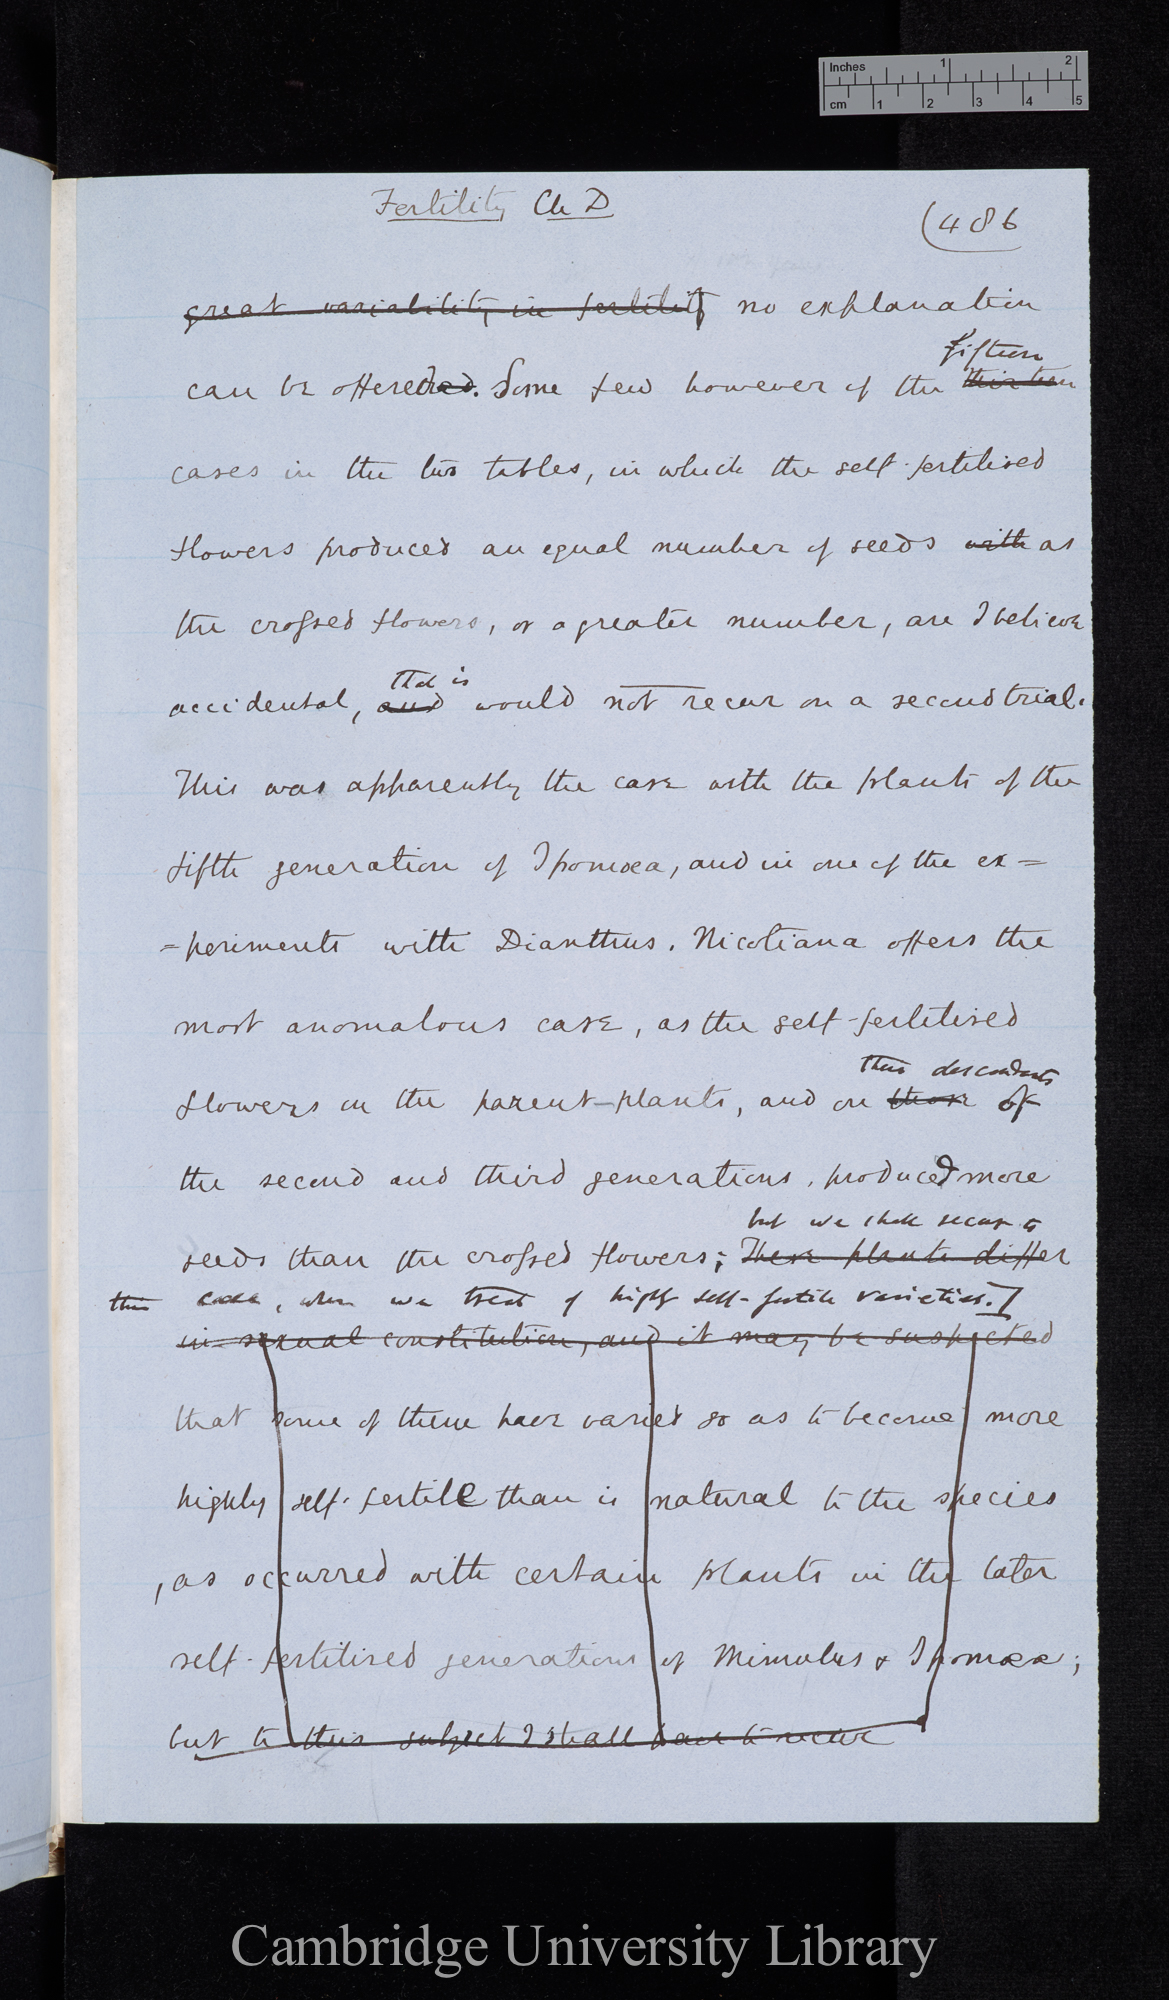 Inches 1 2
cm 1 2 3 4 5
Fertility Ch D
(486
great variability in fertility no explanation
fifteen
can be offered. Some few however of the thirteen
cases in the two tables, in which the self-fertilised
flowers produced an equal number of seeds with as
the crossed flowers, or a greater number, are I believe
that is
accidental, and would not recur on a second trial.
This was apparently the case with the plants of the
fifth generation of Ipomœa, and in one of the ex=
=periments with Dianthus. Nicotiana offers the
most anomalous case, as the self-fertilised
their descendants
flowers on the parent-plants, and on those of
the second and third generations, produced more
but we shall recur to
seeds than the crossed flowers; These plants differ
this case, when we treat of highly self-fertile varieties.]
in sexual constitution, and it may be suspected
that some of them have varied so as to become more
highly self-fertile than is natural to the species
, as occurred with certain plants in the later
self-fertilised generations of Mimulus & Ipomœa;
but to this subject I shall have to recur
Cambridge University Library